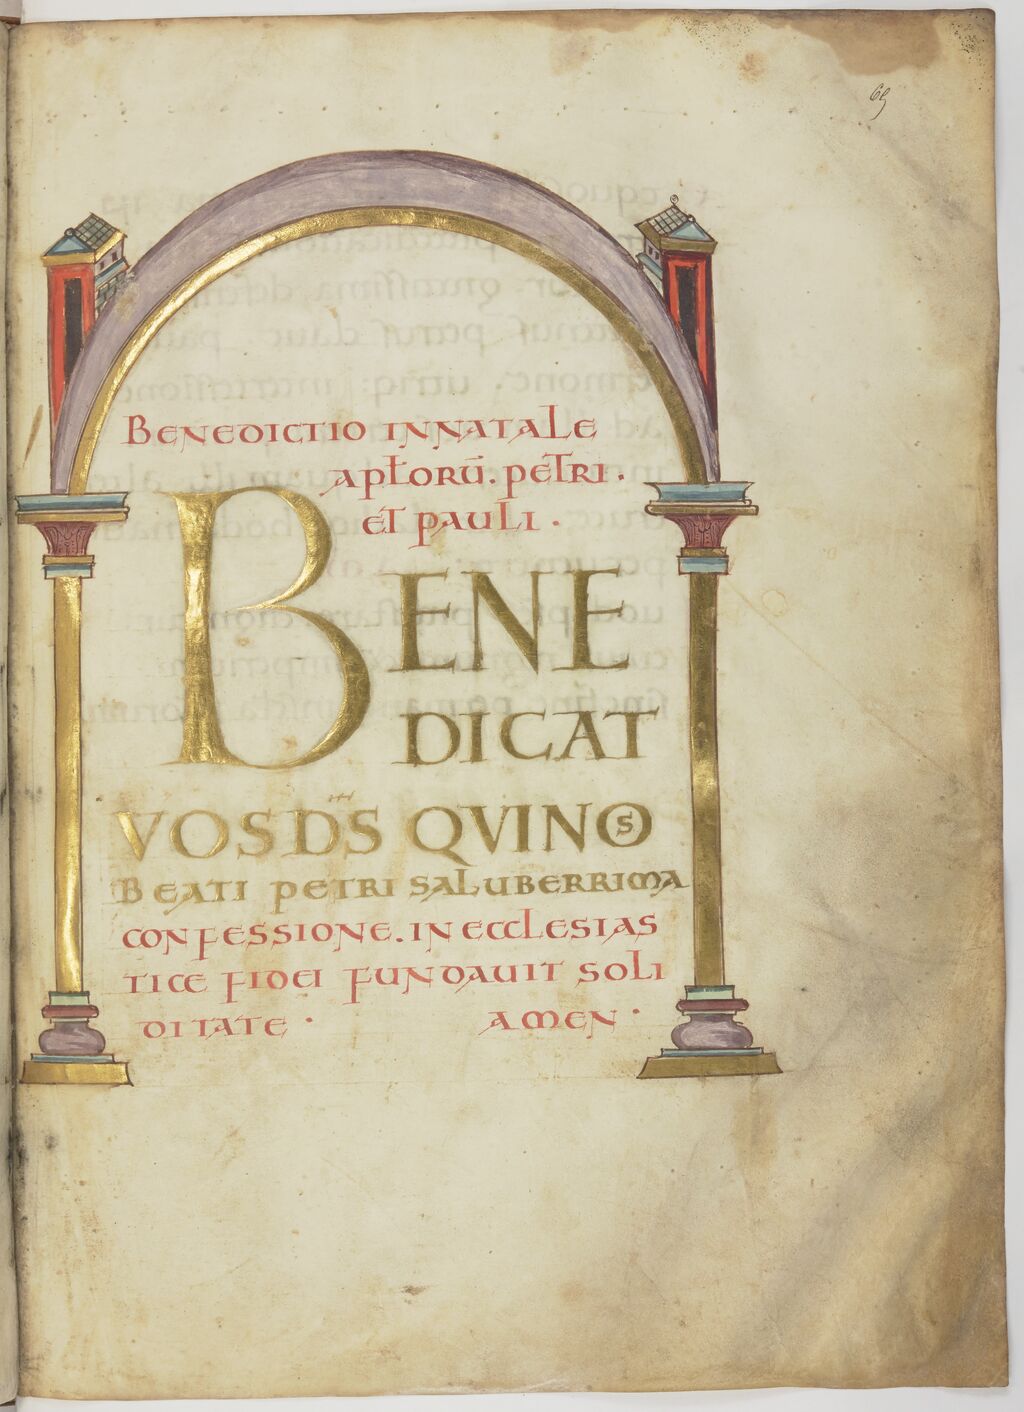 69
BENEDICTIO INNATALE
APŁORŪ. PETRI.
ET PAULI.
BENE
DICAT
VOS D̅S QVI NOS
BEATI PETRI SALUBERRIMA
CONFESSIONE. IN ECCLESIAS
TICE FIDEI FUNDAUIT SOLI
DITATE. AMEN.